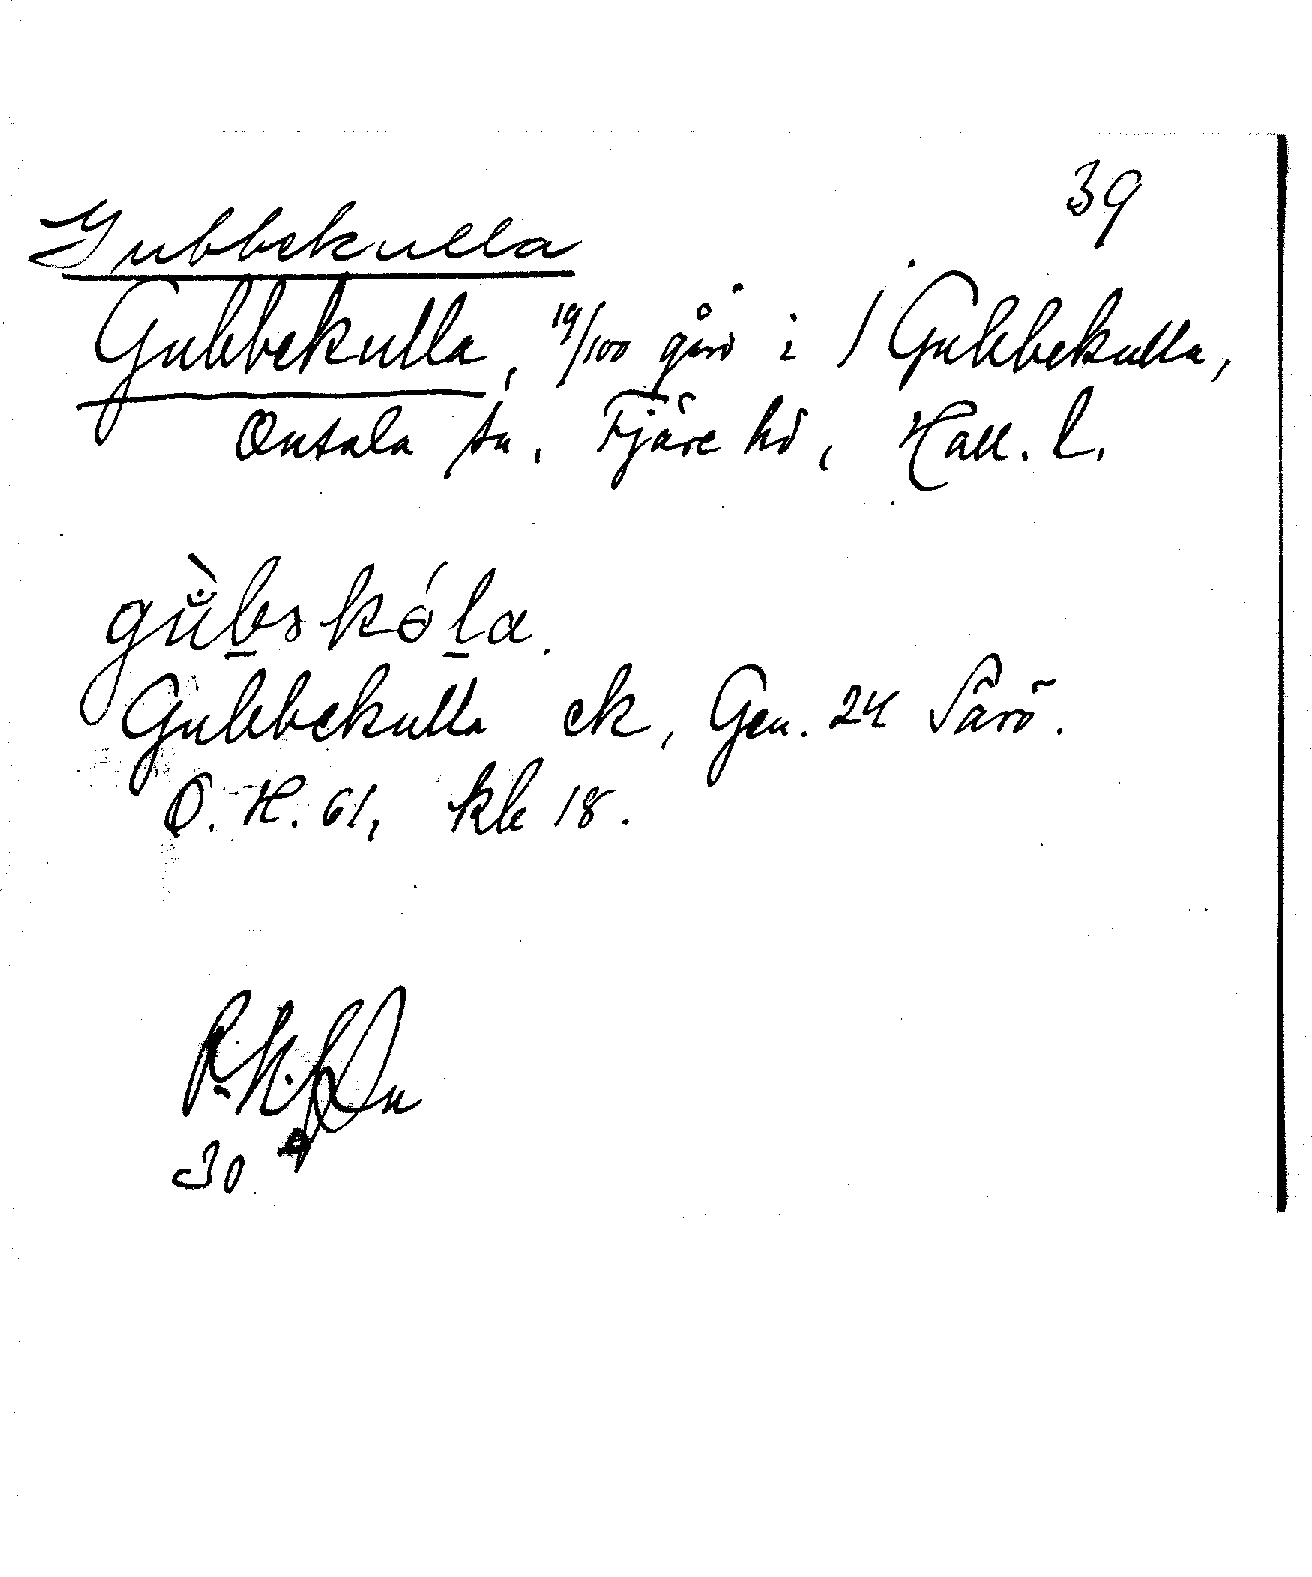 39
Gubbekulla
Gubbekulla, 19/100 gård i 1 Gubbekulla,
Onsala sn, Fjäre hd, Hall. l.
gùbəkóla.
Gubbekulla ek, Gen. 24 Särö.
O. H. 61, kk 18.
30